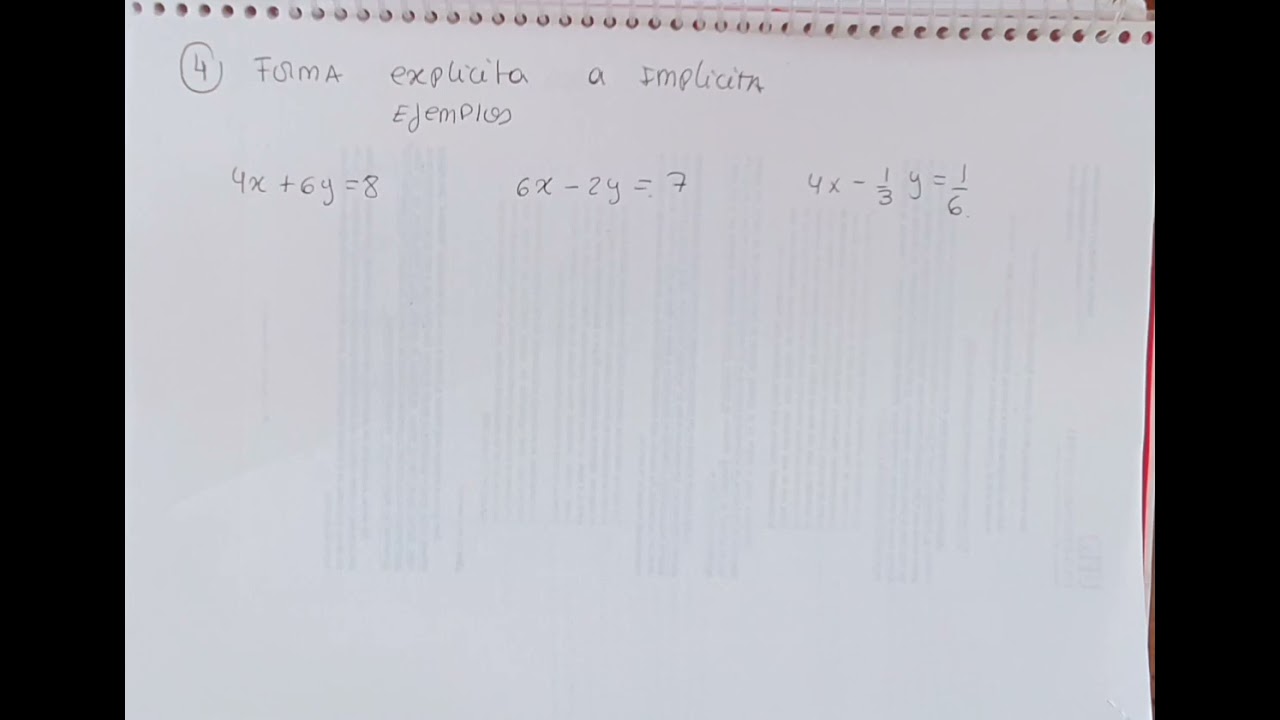 4 Forma explicita a Implicita
Ejemplos
4x + 6y = 8    6x - 2y = 7    4x - 1/3 y = 1/6